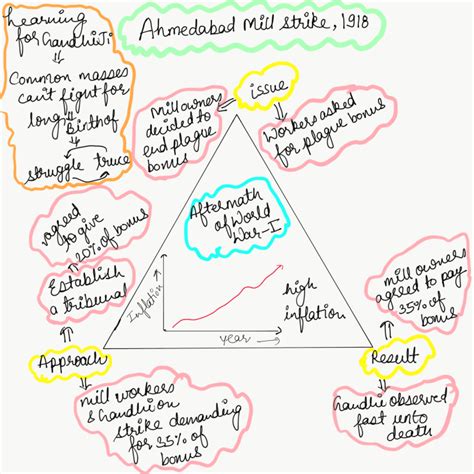 Ahmedabad Mill strike, 1918
learning
for Gandhiji
Common masses
can't fight for
long
Birth of
struggle truce
issue
Mill owners
decided to
end plague
bonus
Workers asked
for plague bonus
Aftermath
of World
War-I
Inflation →
year →
high
inflation
Approach
Establish
a tribunal
agreed
to give
20% of bonus
mill workers
& Gandhi on
strike demanding
for 35% of
bonus
Result
mill owners
agreed to pay
35% of
bonus
Gandhi observed
fast unto
death